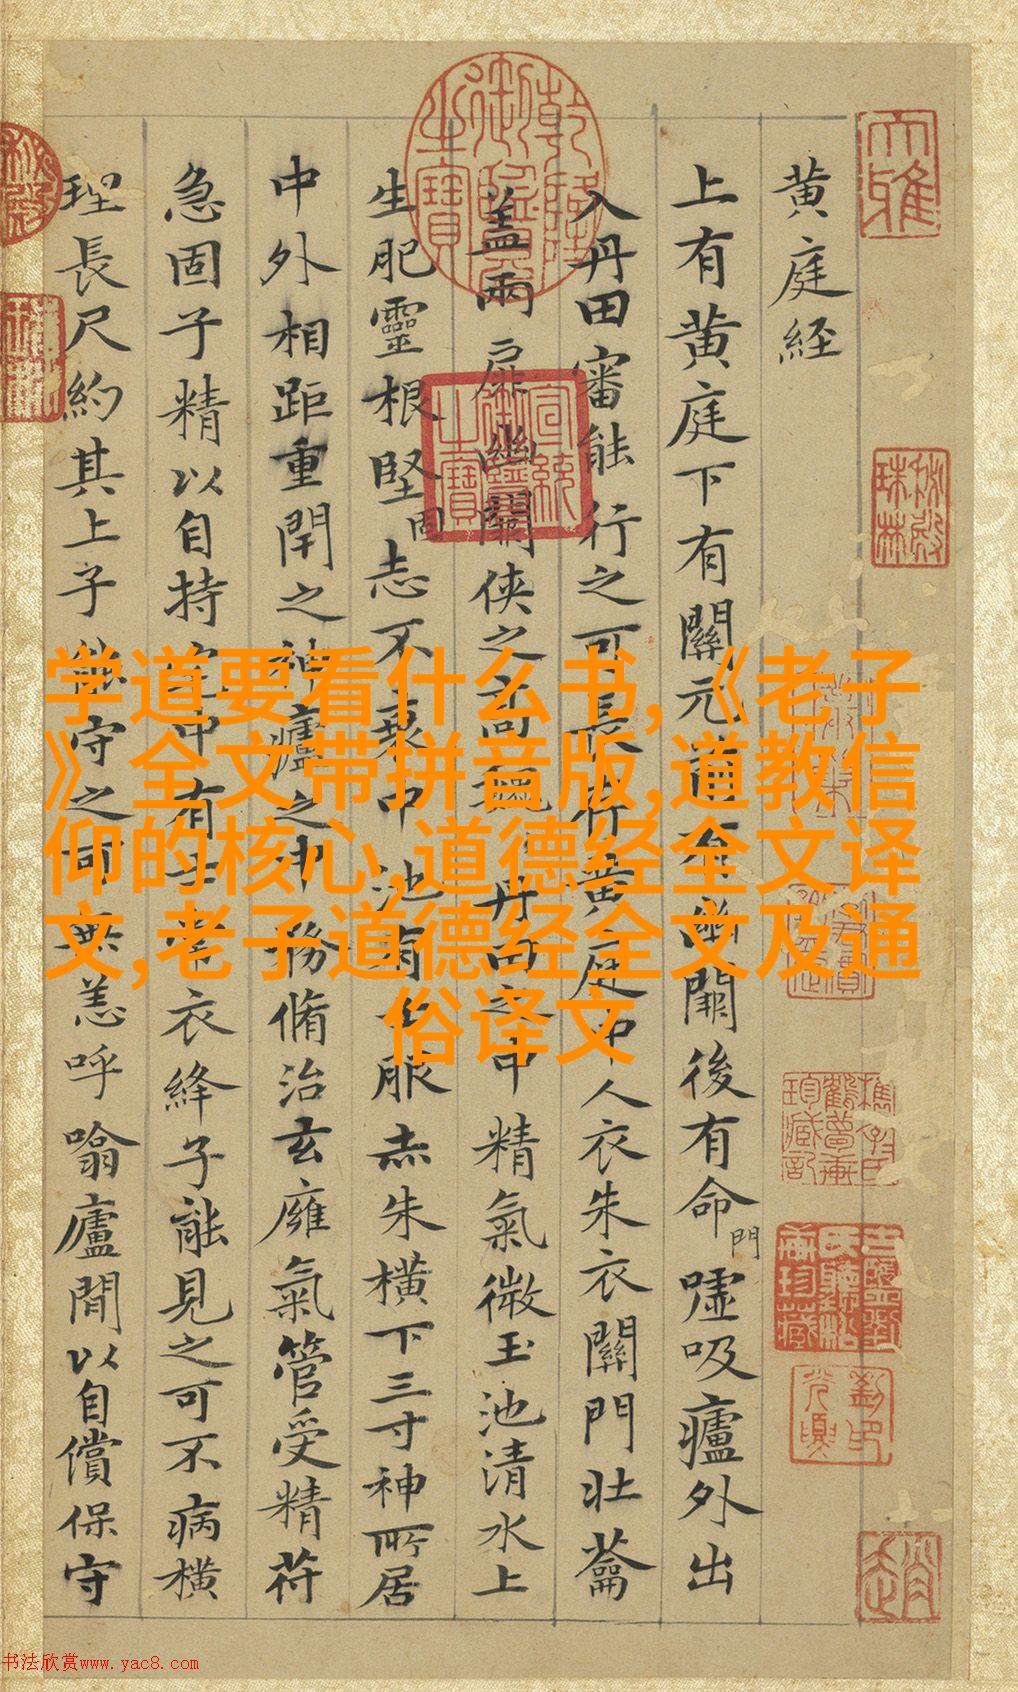 黄庭経
上有黄庭下有關元前有幽闕後有命門嘘吸廬外出
入丹田審能行之可長存黄庭中人衣朱衣關門壯籥
蓋兩扉幽關俠之高巍巍丹田之中精氣微玉池清水上
生肥靈根堅固志不衰中池有士服赤朱横下三寸神所居
中外相距重閉之神廬之中務脩治玄廱氣管受精符
急固子精以自持宅中有士常衣絳子能見之可不病横
理長尺約其上子能守之可無恙呼噏廬間以自償保守
乾隆御覽之寶
宣統御覽之寶
学道要看什么书,《老子
》全文带拼音版,道教信
仰的核心,道德经全文译
文,老子道德经全文及通
俗译文
书法欣赏www.yac8.com